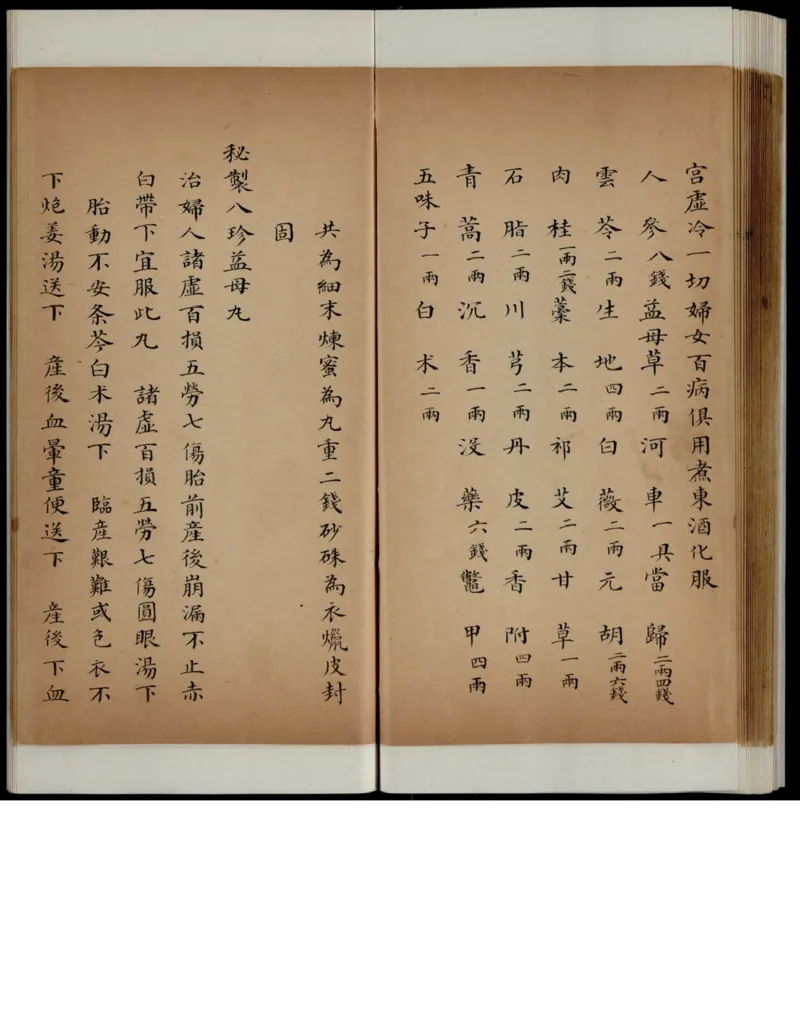 宮虛冷一切婦女百病俱用煮東酒化服
人參八錢益母草二兩河車一具當歸二兩四錢
雲苓二兩生地四兩白薇二兩元胡二兩六錢
肉桂一兩二錢藁本二兩祁艾二兩甘草一兩
石脂二兩川芎二兩丹皮二兩香附四兩
青蒿二兩沉香一兩沒藥六錢鼈甲四兩
五味子一兩白朮二兩
共為細末煉蜜為丸重二錢砂硃為衣爉皮封
固
秘製八珍益母丸
治婦人諸虛百損五勞七傷胎前產後崩漏不止赤
白帶下宜服此丸 諸虛百損五勞七傷圓眼湯下
胎動不安条芩白朮湯下 臨產艱難或色衣不
下炮姜湯送下 產後血暈童便送下 產後下血